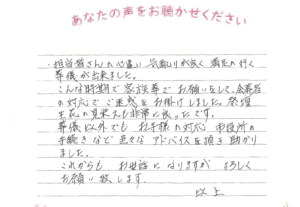 あなたの声をお聴かせください
・担当者さんの心遣い 気配りが良く 満足の行く
葬儀が出来ました。
こんな時期で家族葬でお願いをして、
の対応でご迷惑をお掛けしました。祭壇
生花の見栄えも非常に良かったです。
葬儀以外でも お手様の対応 市役所の
手続きなど色々なアドバイスを頂き助かり
ました。
これからも お世話になりますが よろしく
お願い致します。
以上